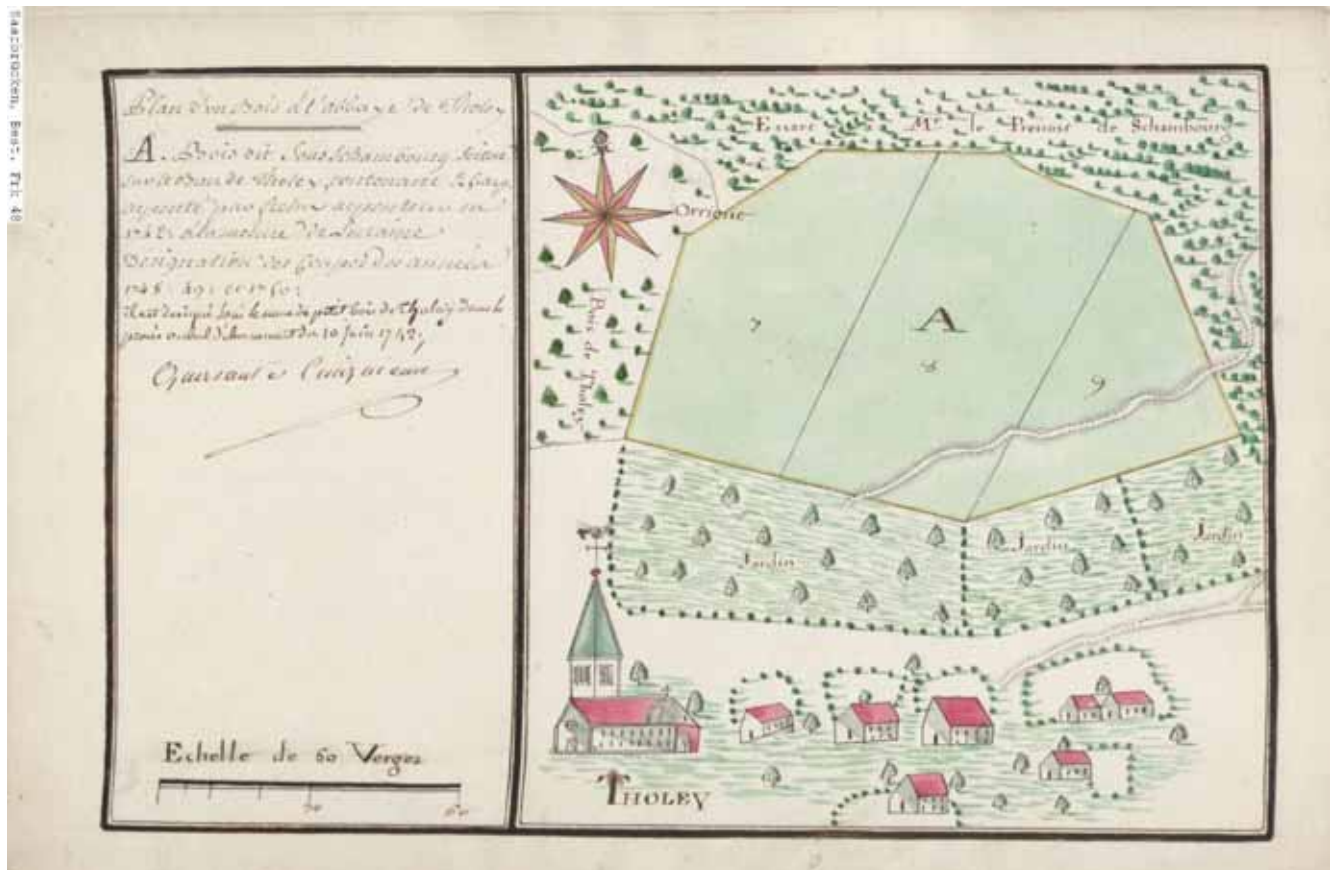 Saarbrücken, Best. Frk 48
Plan d'un Bois d l'abbaye De Tholey
A. Bois dit Sous Schambourg Scitué
sur le Ban de Tholey contenant
arpenté par arpenteur en
1742 a la mesure De Lorraine
Designation Des Coupes Des années
1748 : 49 : et 1750 :
Il est designé sous le nom de petit bois de Tholey dans le
procés verbal d' du 10 Juin 1742 ;
Echelle de 60 Verges
30 60
Mr le Prevost de Schambourg
Orrigne
Bois de Tholey
A
7
8
9
Jardin
Jardin
Jardin
THOLEY